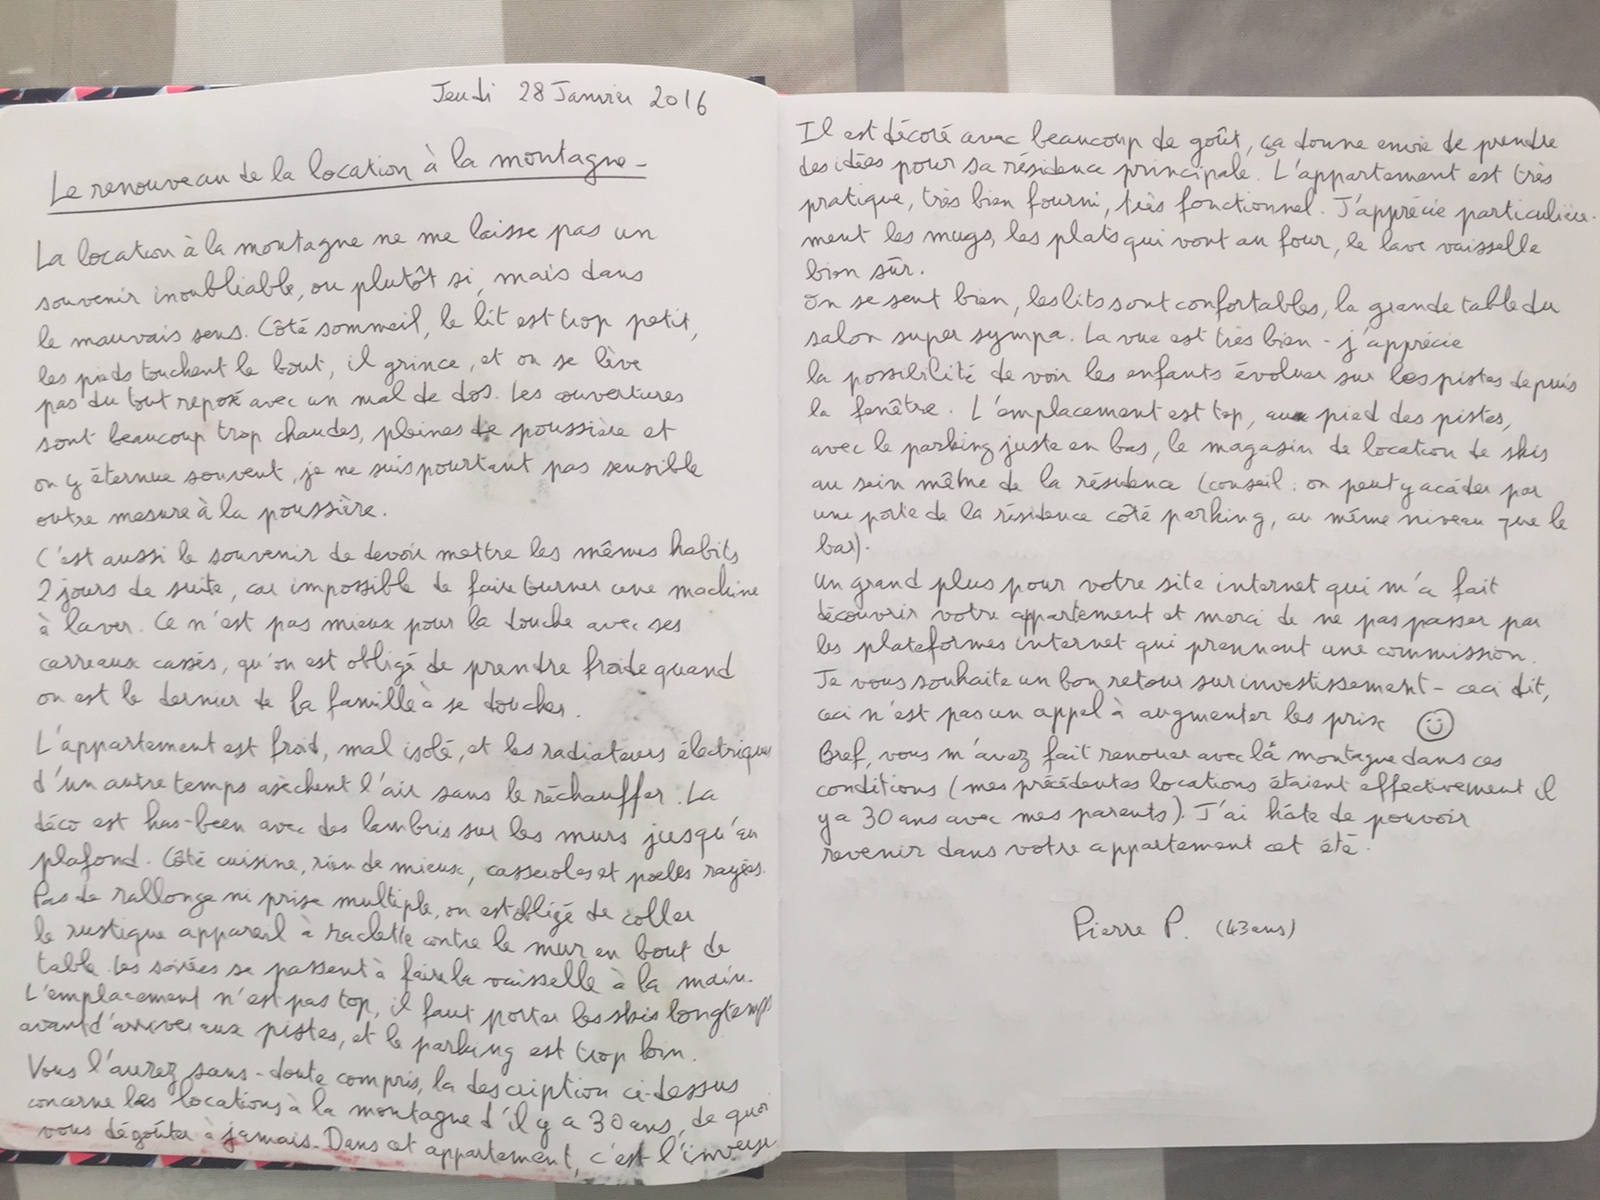 Jeudi 28 Janvier 2016
Le renouveau de la location à la montagne -
La location à la montagne ne me laisse pas un
souvenir inoubliable, ou plutôt si, mais dans
le mauvais sens. Côté sommeil, le lit est trop petit,
les pieds touchent le bout, il grince, et on se lève
pas du tout reposé avec un mal de dos. Les couvertures
sont beaucoup trop chaudes, pleines de poussière et
on y éternue souvent, je ne suis pourtant pas sensible
outre mesure à la poussière.
C'est aussi le souvenir de devoir mettre les mêmes habits
2 jours de suite, car impossible de faire tourner une machine
à laver. Ce n'est pas mieux pour la douche avec ses
carreaux cassés, qu'on est obligé de prendre froide quand
on est le dernier de la famille à se doucher.
L'appartement est froid, mal isolé, et les radiateurs électriques
d'un autre temps asèchent l'air sans le réchauffer. La
déco est has-been avec des lambris sur les murs jusqu'au
plafond. Côté cuisine, rien de mieux, casseroles et poeles rayées.
Pas de rallonge ni prise multiple, on est obligé de coller
le rustique appareil à raclette contre le mur en bout de
table. Les soirées se passent à faire la vaisselle à la main.
L'emplacement n'est pas top, il faut porter les skis longtemps
avant d'arriver aux pistes, et le parking est trop loin.
Vous l'aurez sans-doute compris, la description ci-dessus
concerne les locations à la montagne d'il y a 30 ans, de quoi
vous dégoûter à jamais. Dans cet appartement, c'est l'inverse
Il est décoré avec beaucoup de goût, ça donne envie de prendre
des idées pour sa résidence principale. L'appartement est très
pratique, très bien fourni, très fonctionnel. J'apprécie particulière-
ment les mugs, les plats qui vont au four, le lave vaisselle
bien sûr.
On se sent bien, les lits sont confortables, la grande table du
salon super sympa. La vue est très bien - j'apprécie
la possibilité de voir les enfants évoluer sur les pistes depuis
la fenêtre. L'emplacement est top, au pied des pistes,
avec le parking juste en bas, le magasin de location de skis
au sein même de la résidence (conseil : on peut y accéder par
une porte de la résidence côté parking, au même niveau que le
bar).
Un grand plus pour votre site internet qui m'a fait
découvrir votre appartement et merci de ne pas passer par
les plateformes internet qui prennent une commission.
Je vous souhaite un bon retour sur investissement - ceci dit,
ceci n'est pas un appel à augmenter les prix ☺
Bref, vous m'avez fait renouer avec la montagne dans ces
conditions (mes précédentes locations étaient effectivement il
y a 30 ans avec mes parents). J'ai hâte de pouvoir
revenir dans votre appartement cet été.
Pierre P. (43 ans)